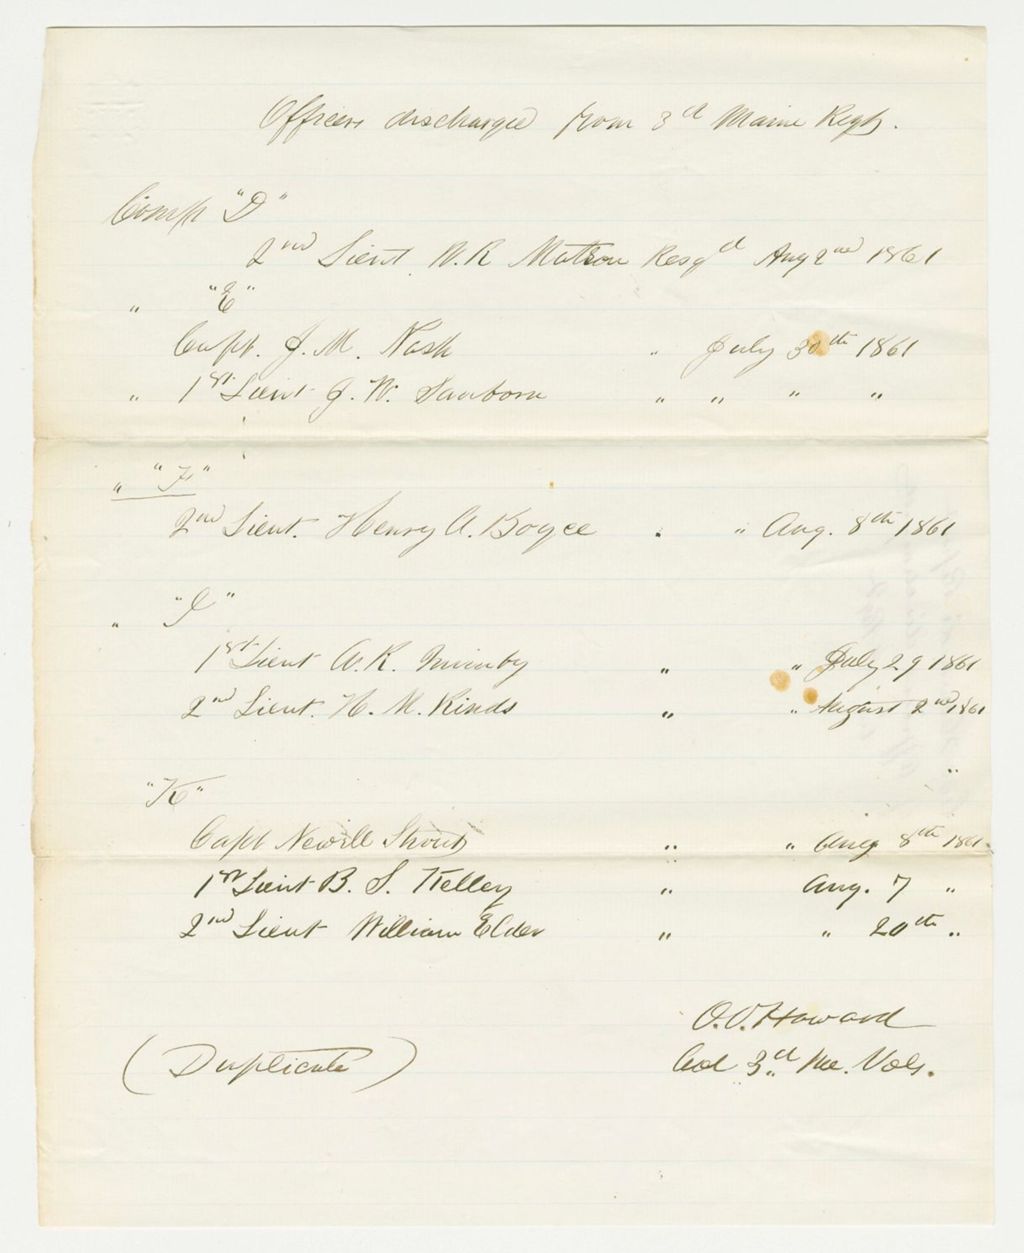 Officers discharged from 3d Maine Regt.
Comp "D"
2nd Lieut W. R. Mattson Resgd Aug 2nd 1861
" "E"
Capt. J. M. Nash " July 30th 1861
" 1st Lieut J. W. Sanborn " " " "
" "F"
2nd Lieut. Henry A. Boyce " " Aug. 8th 1861
" "I"
1st Lieut A. R. Quinby " " July 29 1861
2nd Lieut. H. M. Rinds " " August 2nd 1861
"K" "
Capt Newell Strout " " Aug 8th 1861.
1st Lieut B. S. Kelley " Aug. 7 "
2nd Lieut William Elder " " 20th "
O. O. Howard
Col 3d Me. Vols.
(Duplicate)